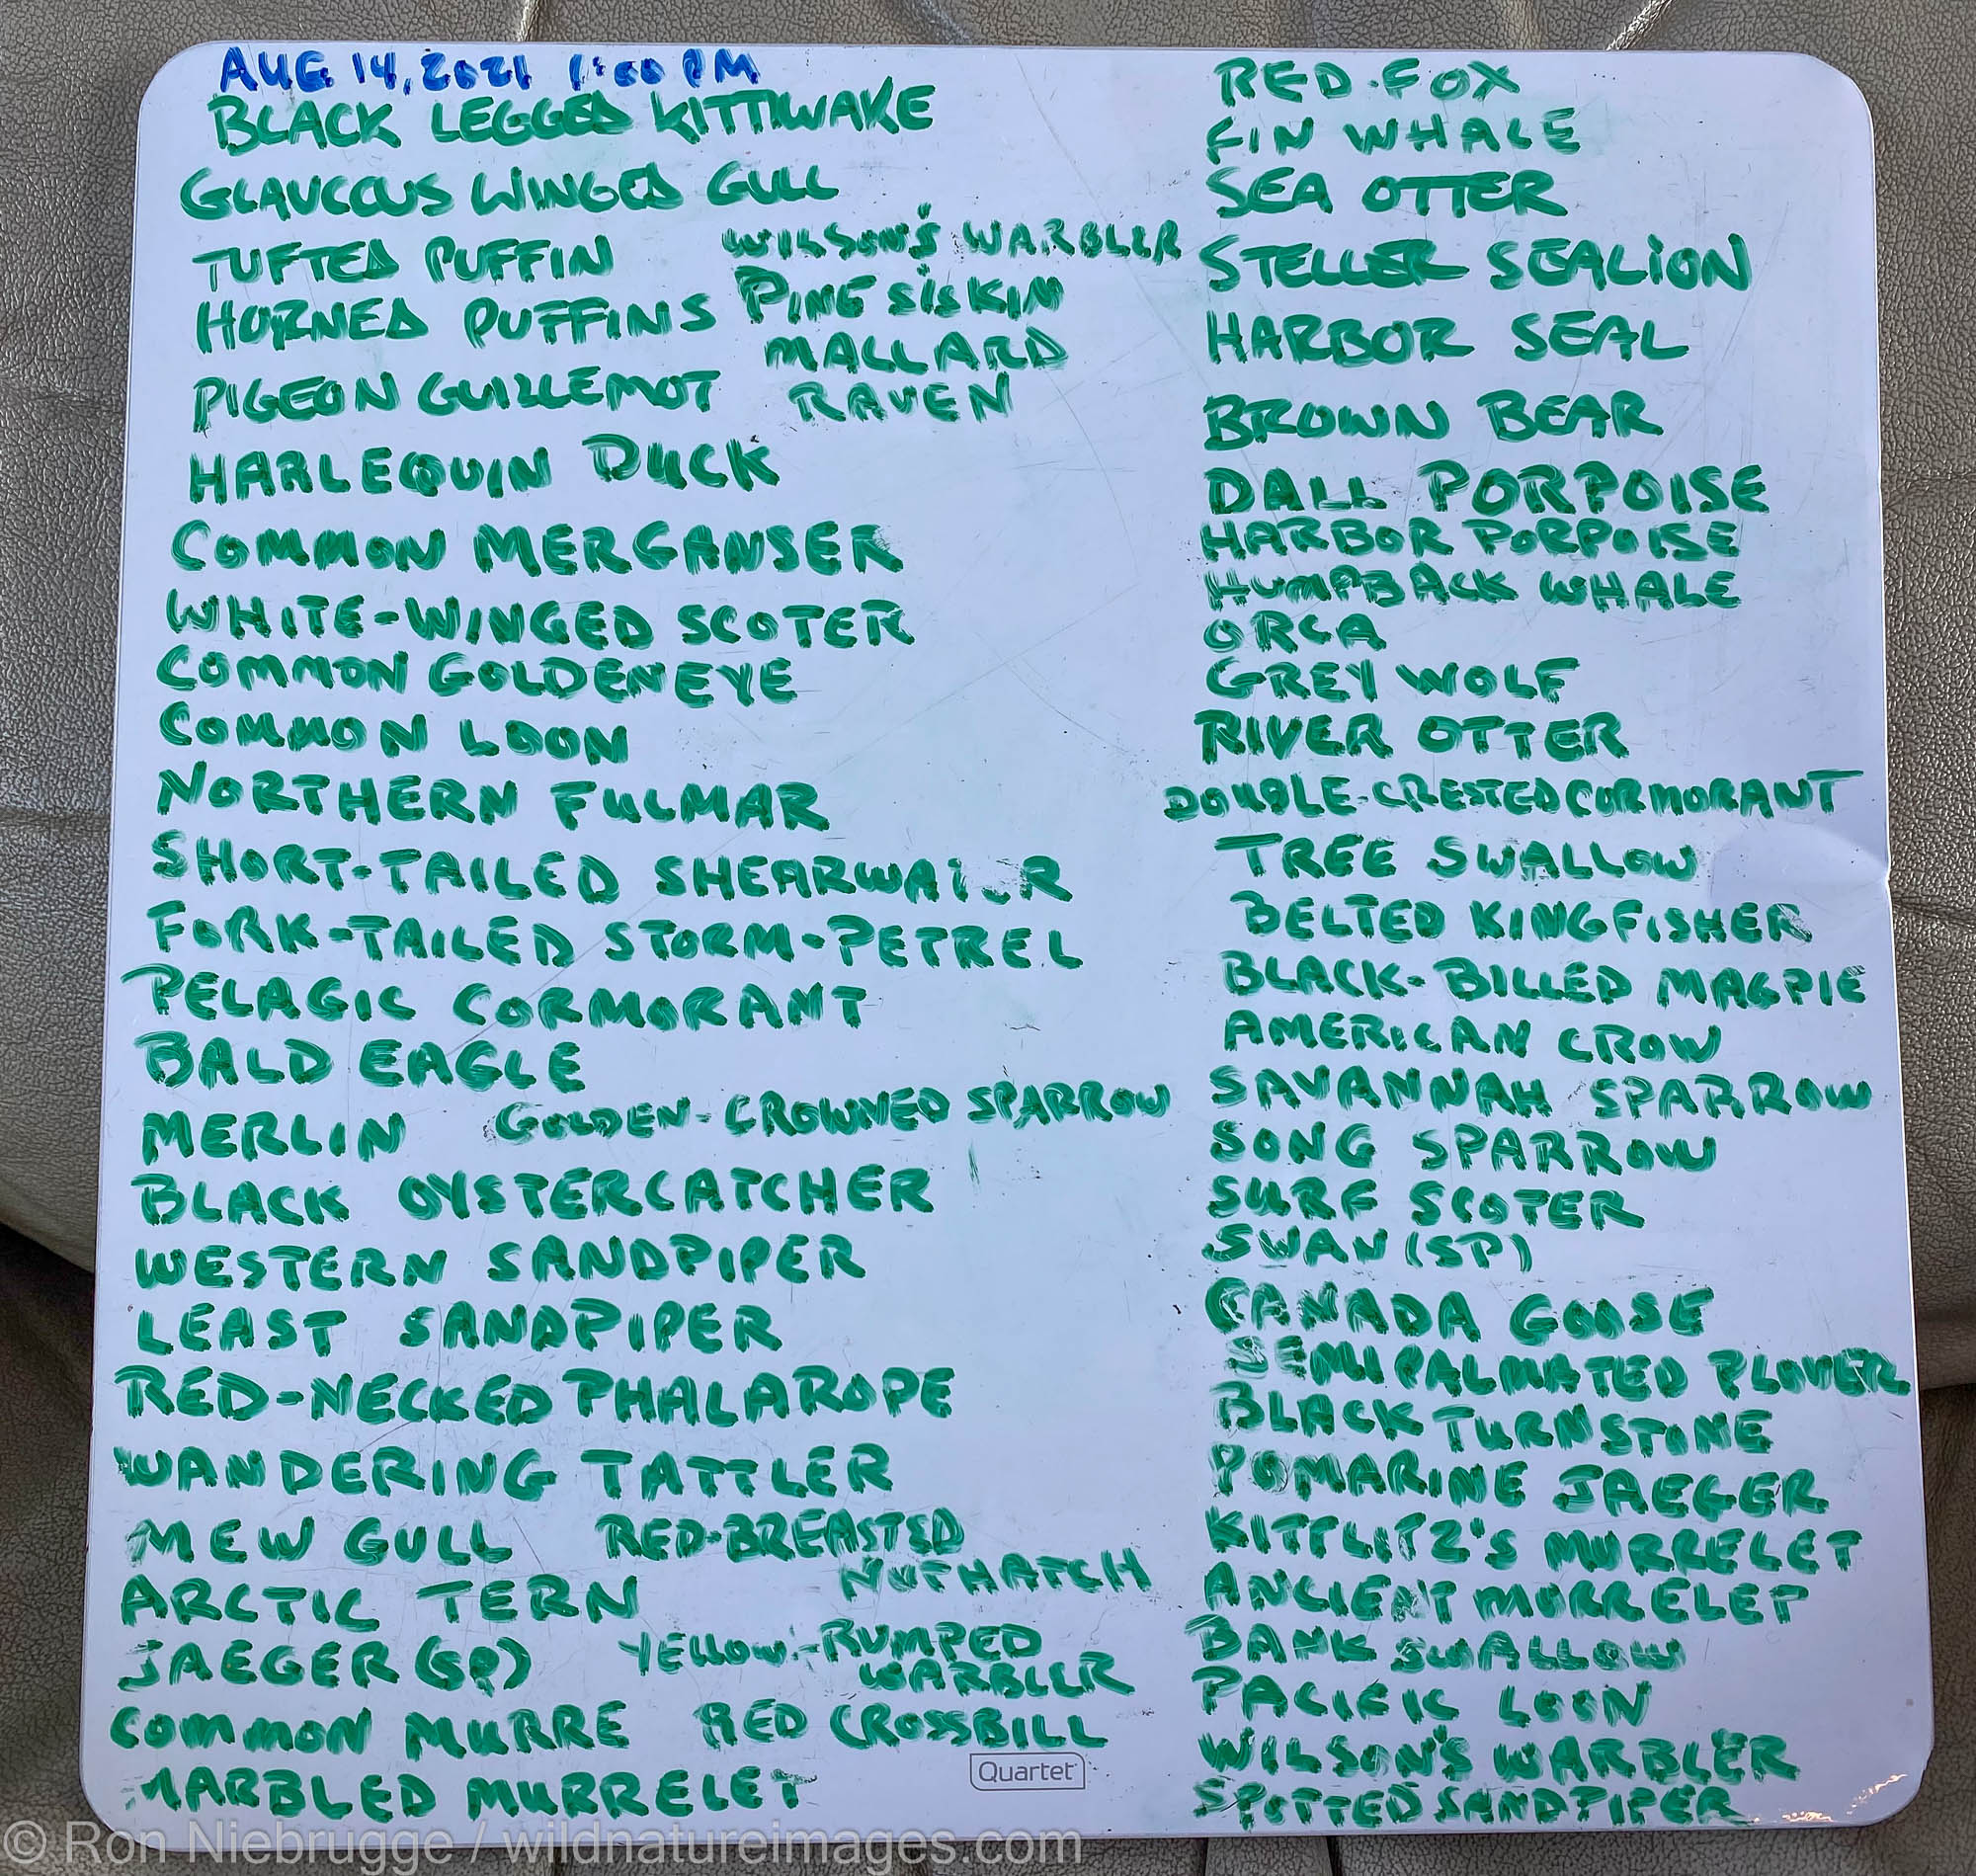 AUG 14, 2021 1:00 PM
BLACK LEGGED KITTIWAKE
GLAUCOUS WINGED GULL
TUFTED PUFFIN
HORNED PUFFINS
PIGEON GUILLEMOT
WILSON'S WARBLER
PINE SISKIN
MALLARD
RAVEN
HARLEQUIN DUCK
COMMON MERGANSER
WHITE-WINGED SCOTER
COMMON GOLDENEYE
COMMON LOON
NORTHERN FULMAR
SHORT-TAILED SHEARWATER
FORK-TAILED STORM-PETREL
PELAGIC CORMORANT
BALD EAGLE
MERLIN
GOLDEN-CROWNED SPARROW
BLACK OYSTERCATCHER
WESTERN SANDPIPER
LEAST SANDPIPER
RED-NECKED PHALAROPE
WANDERING TATTLER
MEW GULL
ARCTIC TERN
JAEGER (SP)
COMMON MURRE
MARBLED MURRELET
RED-BREASTED
NUTHATCH
YELLOW-RUMPED
WARBLER
RED CROSSBILL
RED FOX
FIN WHALE
SEA OTTER
STELLER SEALION
HARBOR SEAL
BROWN BEAR
DALL PORPOISE
HARBOR PORPOISE
HUMPBACK WHALE
ORCA
GREY WOLF
RIVER OTTER
DOUBLE-CRESTED CORMORANT
TREE SWALLOW
BELTED KINGFISHER
BLACK-BILLED MAGPIE
AMERICAN CROW
SAVANNAH SPARROW
SONG SPARROW
SURF SCOTER
SWAN (SP)
CANADA GOOSE
SEMIPALMATED PLOVER
BLACK TURNSTONE
POMARINE JAEGER
KITTLITZ'S MURRELET
ANCIENT MURRELET
BANK SWALLOW
PACIFIC LOON
WILSON'S WARBLER
SPOTTED SANDPIPER
Quartet
© Ron Niebrugge / wildnatureimages.com